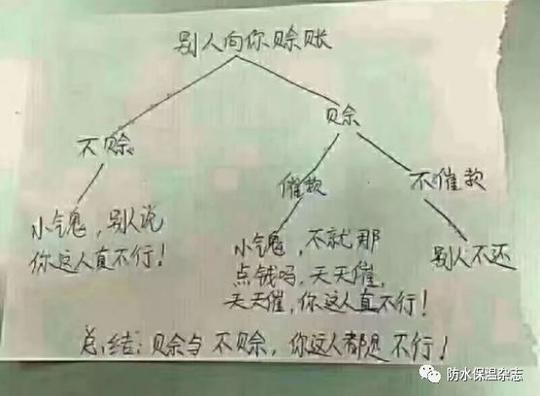 别人向你赊账
不赊
赊
催款
不催款
小气鬼，别人说
你这人真不行！
小气鬼，不就那
点钱吗，天天催，
天天催，你这人真不行！
别人不还
总结：赊与不赊，你这人都是不行！
防水保温杂志